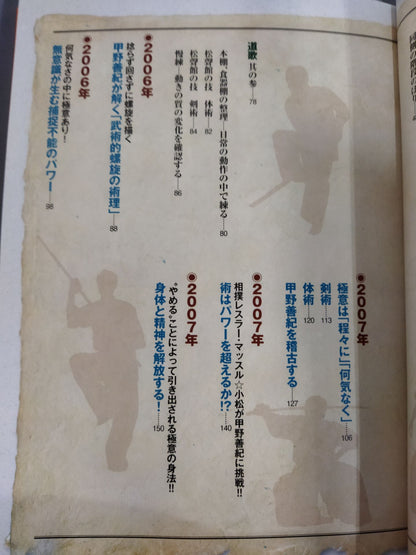 道歌 其の参……78
本棚、食器棚の整理 日常の動作の中で練る……80
松聲館の技 体術……82
松聲館の技 剣術……84
慢練——動きの質の変化を確認する……86
●2006年
捻らず回さずに螺旋を描く
甲野善紀が解く「武術的螺旋の術理」……88
●2006年
何気なさの中に極意あり!
無意識が生む捕捉不能のパワー……98
●2007年
極意は「程々に」「何気なく」……106
剣術……113
体術……120
甲野善紀を稽古する……127
●2007年
相撲レスラー・マッスル☆小松が甲野善紀に挑戦!!
術はパワーを超えるか!?……140
●2007年
“やめる”ことによって引き出される極意の身法!!
身体と精神を解放する!……150